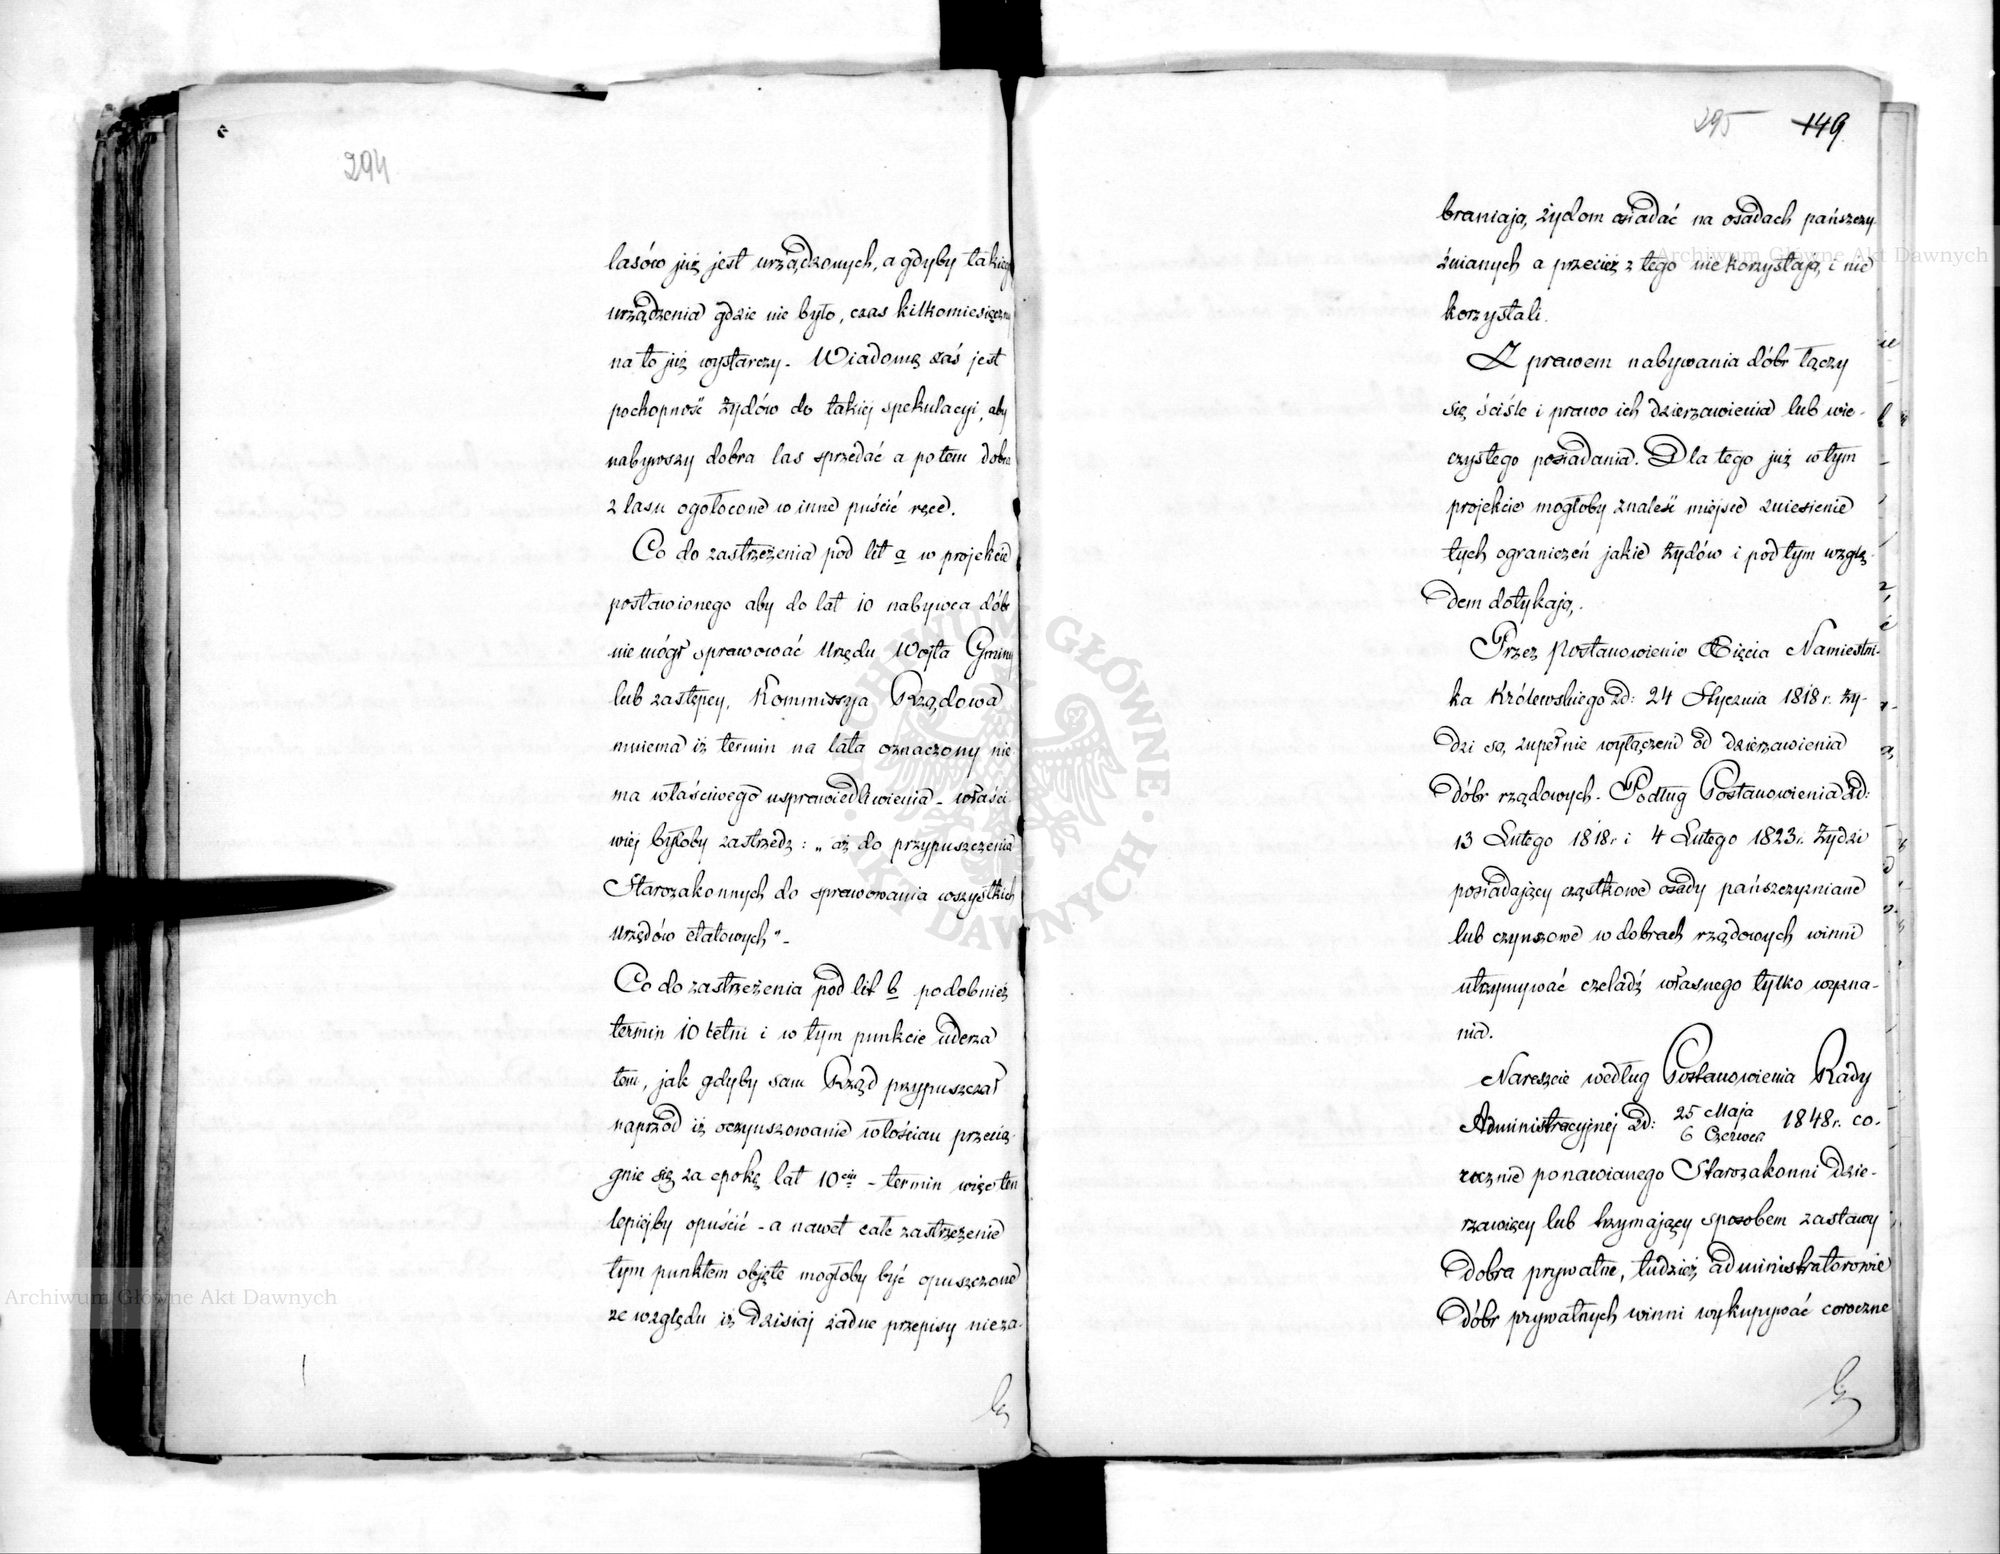 294
lasów już jest urządzonych, a gdyby takiego
urządzenia gdzie nie było, czas kilkomiesięczny
na to już wystarczy. Wiadomą zaś jest
pochopność Żydów do takiej spekulacyi, aby
nabywszy dobra las sprzedać a potem dobra
z lasu ogołocone w inne puścić ręce.
Co do zastrzeżenia pod lit a w projekcie
postawionego aby do lat 10 nabywca dóbr
nie mógł sprawować Urzędu Wójta Gminy
lub zastępcy, Kommissya Rządowa
mniema iż termin na lata oznaczony nie
ma właściwego usprawiedliwienia – właści-
wiej byłoby zastrzedz: „aż do przypuszczenia
Starozakonnych do sprawowania wszystkich
Urzędów etatowych" –
Co do zastrzeżenia pod lit b podobnież
termin 10 letni i w tym punkcie uderza
tem, jak gdyby sam Rząd przypuszczał
naprzód iż oczynszowanie włościan przecią-
gnie się za epokę lat 10ciu – termin więc ten
lepiejby opuścić – a nawet całe zastrzeżenie
tym punktem objęte mogłoby być opuszczone
ze względu iż dzisiaj żadne przepisy nieza-
295 149
braniają, żydom osiadać na osadach pańszczy
źnianych a przecież z tego nie korzystają i nie
korzystali.
Z prawem nabywania dóbr łączy
się ściśle i prawo ich dzierżawienia lub wie-
czystego posiadania. Dla tego już w tym
projekcie mogłoby znaleść miejsce zniesienie
tych ograniczeń jakie Żydów i pod tym wzglę-
dem dotykają.
Przez Postanowienie Xięcia Namiestni-
ka Królewskiego zd: 24 Stycznia 1818 r. Ży-
dzi są zupełnie wyłączeni od dzierżawienia
dóbr rządowych. Podług Postanowienia zd:
13 Lutego 1818 r i 4 Lutego 1823 r. Żydzi
posiadający cząstkowe osady pańszczyzniane
lub czynszowe w dobrach rządowych winni
utrzymywać czeladź własnego tylko wyzna-
nia.
Nareszcie według Postanowienia Rady
Administracyjnej zd: 25 Maja / 6 Czerwca 1848 r. co-
rocznie ponawianego Starozakonni dzie-
rzawiący lub trzymający sposobem zastawy
dobra prywatne, tudzież administratorowie
dóbr prywatnych winni wykupywać coroczne
Archiwum Główne Akt Dawnych
Archiwum Główne Akt Dawnych
ARCHIWUM GŁÓWNE AKT DAWNYCH